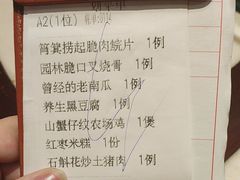 A2(1位)
筲箕捞起脆肉鲩片 1例
园林脆口叉烧骨 1例
曾经的老南瓜 1例
养生黑豆腐 1例
山蟹仔纹农场鸡 1煲
红枣米糕 1份
石斛花炒土猪肉 1例